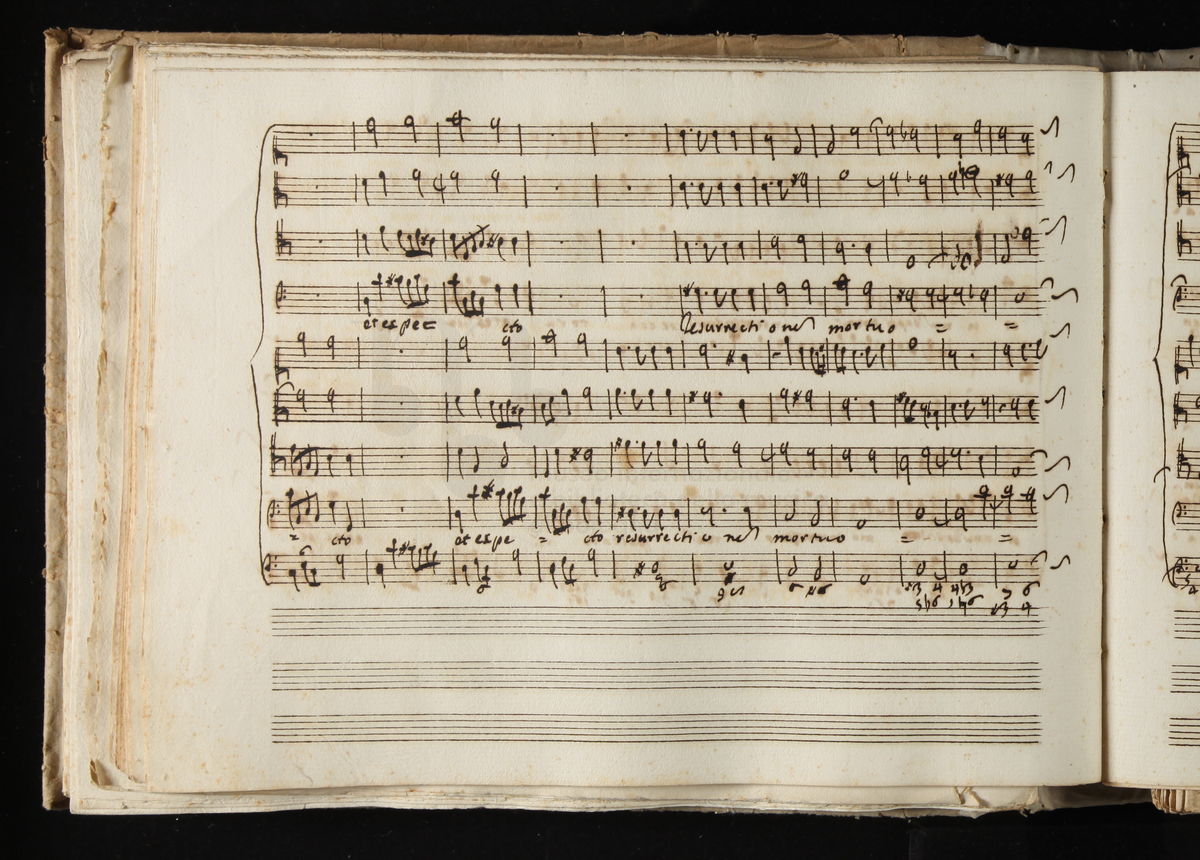 et espec= cto Resurrectionem mortuo = =
= cto et espe = cto resurrectionem mortuo = =